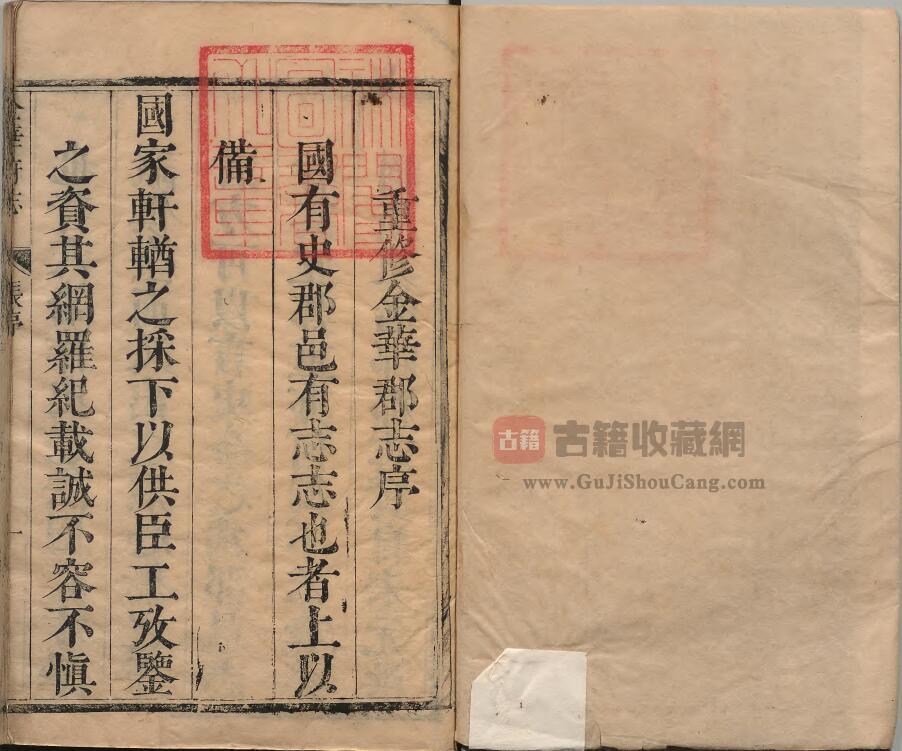 重修金華郡志序
國有史郡邑有志志也者上以
備
國家軒輶之採下以供臣工攷鑒
之資其網羅紀載誠不容不慎
張序
一
古籍
古籍收藏網
www.GuJiShouCang.com